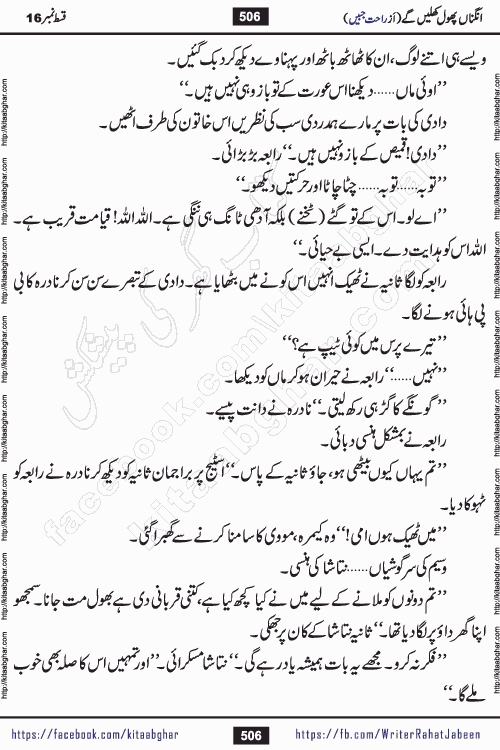 انگناں پھول کھلیں گے (از راحت جبیں)
506
قسط نمبر 16
ویسے ہی اتنے لوگ، ان کا ٹھاٹھ باٹھ اور پہناوے دیکھ کر دبک گئیں۔
”اوئی ماں...... دیکھنا اس عورت کے تو بازو ہی نہیں ہیں۔“
دادی کی بات پر مارے ہمدردی سب کی نظریں اس خاتون کی طرف اٹھیں۔
”دادی! قمیص کے بازو نہیں ہیں۔“ رابعہ بڑبڑائی۔
”توبہ...... توبہ...... چٹا چاٹا اور حرکتیں دیکھو۔“
”اے لو۔ اس کے تو گٹے (ٹخنے) بلکہ آدھی ٹانگ ہی ننگی ہے۔ اللہ اللہ! قیامت قریب ہے۔
اللہ اس کو ہدایت دے۔ ایسی بے حیائی۔“
رابعہ کو لگا ثانیہ نے ٹھیک انہیں اس کونے میں بٹھایا ہے۔ دادی کے تبصرے سن سن کر نادرہ کا بی
پی ہائی ہونے لگا۔
”تیرے پرس میں کوئی ٹیپ ہے؟“
”نہیں......“ رابعہ نے حیران ہو کر ماں کو دیکھا۔
”گونگے کا گڑ ہی رکھ لیتی۔“ نادرہ نے دانت پیسے۔
رابعہ نے بمشکل ہنسی دبائی۔
”تم یہاں کیوں بیٹھی ہو، جاؤ ثانیہ کے پاس۔“ اسٹیج پر براجمان ثانیہ کو دیکھ کر نادرہ نے رابعہ کو
ٹہوکا دیا۔
”میں ٹھیک ہوں امی!“ وہ کیمرہ، مووی کا سامنا کرنے سے گھبرا گئی۔
وسیم کی سرگوشیاں...... نتاشا کی ہنسی۔
”تم دونوں کو ملانے کے لیے میں نے کیا کچھ کیا ہے، کتنی قربانی دی ہے بھول مت جانا۔ سمجھو
اپنا گھر داؤ پر لگا دیا تھا۔“ ثانیہ نتاشا کے کان پر جھکی۔
”فکر نہ کرو۔ مجھے یہ بات ہمیشہ یاد رہے گی۔“ نتاشا مسکرائی۔ ”اور تمہیں اس کا صلہ بھی خوب
ملے گا۔“
http://kitaabghar.com
facebook.com/kitaabghar
kitaabghar.com
کتاب گھر کی پیشکش
https://facebook.com/kitaabghar
506
https://fb.com/WriterRahatJabeen